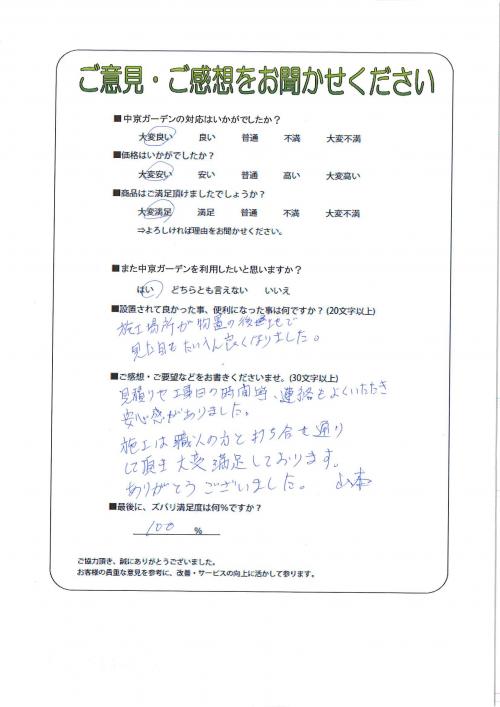 ご意見・ご感想をお聞かせください
■中京ガーデンの対応はいかがでしたか？
大変良い 良い 普通 不満 大変不満
■価格はいかがでしたか？
大変安い 安い 普通 高い 大変高い
■商品はご満足頂けましたでしょうか？
大変満足 満足 普通 不満 大変不満
⇒よろしければ理由をお聞かせください。
■また中京ガーデンを利用したいと思いますか？
はい どちらとも言えない いいえ
■設置されて良かった事、便利になった事は何ですか？(20文字以上)
施工場所が物置の後地で
見た目もたいへん良くなりました。
■ご感想・ご要望などをお書きくださいませ。(30文字以上)
見積りや工事日の時間等、連絡をよくいただき
安心感がありました。
施工は職人の方と打ち合せ通り
して頂き大変満足しております。
ありがとうございました。 山本
■最後に、ズバリ満足度は何％ですか？
100 %
ご協力頂き、誠にありがとうございました。
お客様の貴重な意見を参考に、改善・サービスの向上に活かして参ります。